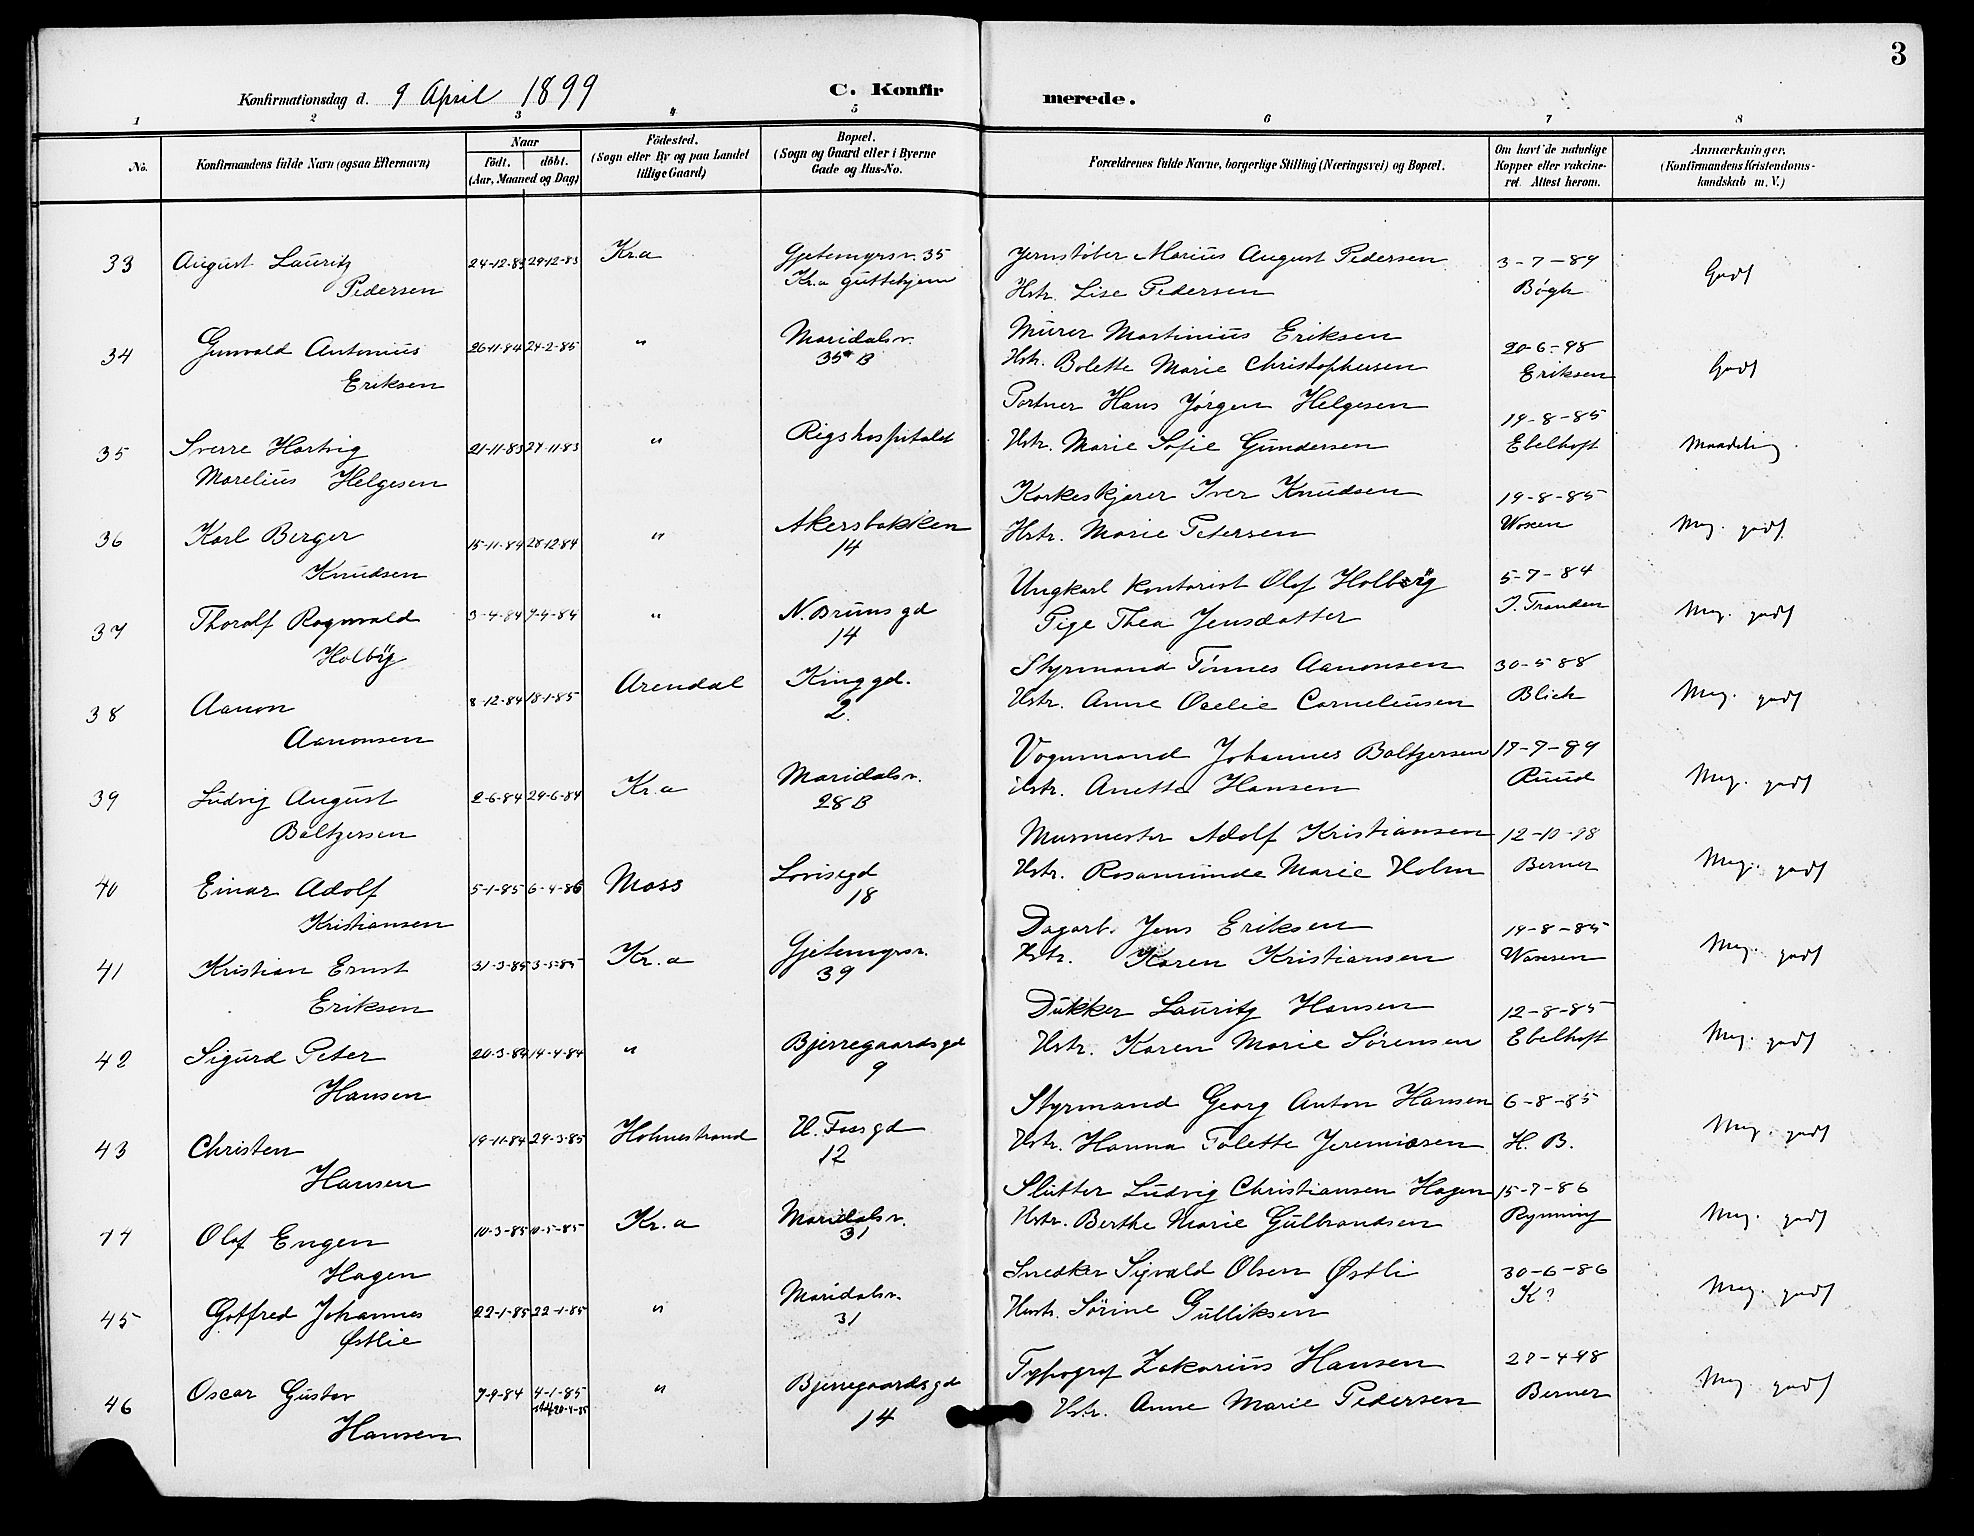 3
Konfirmationsdag d. 9 April 1899
C. Konfirmerede.
1 2 3 4 5 6 7 8
No.
Konfirmandens fulde Navn (ogsaa Efternavn)
Naar
födt. döbt.
(Aar, Maaned og Dag)
Födested.
(Sogn eller By og paa Landet
tillige Gaard)
Bopæl.
(Sogn og Gaard eller i Byerne
Gade og Hus-No.
Forældrenes fulde Navne, borgerlige Stilling (Næringsvei) og Bopæl.
Om havt de naturlige
Kopper eller vakcine-
ret. Attest herom.
Anmærkninger.
(Konfirmandens Kristendoms-
kundskab m. V.)
33 August Lauritz 24-12-83 29-12-83 Kr.a Gjetemyrsv. 35 Jernstøber Marius August Pedersen 3-7-89 Godt
Pedersen Kr.a guttehjem Hstr. Lise Pedersen Bøgh
34 Gunvald Antonius 26-11-84 24-2-85 " Maridalsv. Murer Martinius Eriksen 20-6-98 Godt
Eriksen 35 B Hstr. Bolette Marie Christophersen Eriksen
35 Sverre Hartvig 21-11-83 27-11-83 " Rigshospitalet Portner Hans Jørgen Helgesen 19-8-85 Maadelig
Marelius Helgesen Hstr. Marie Sofie Gundersen Ebelhoft
36 Karl Berger 15-11-84 28-12 84 " Akersbakken Korkeskjærer Iver Knudsen 19-8-85 Meg. godt
Knudsen 14 Hstr. Marie Petersen
37 Thorolf Ragnvald 3-4-84 7-4-84 " N. Bruns gd Ungkarl Kontorist Olof Holbÿ 5-7-84 Meg. godt
Holbÿ 14 Pige Thea Jensdatter J. Tranden
38 Aanon 8-12-84 18-1-85 Arendal Kinggd. Styrmand Tønnes Aanonsen 30-5 88 Meg. godt
Aanonsen 2. Hstr. Anne Ocelie Corneliusen Blich
39 Ludvig August 2-6-84 29-6-84 Kr.a Maridalsv. Vognmand Johannes Baltzersen 17-7-89 Meg. godt
Baltzersen 28 B Hstr. Anette Hansen Ruud
40 Einar Adolf 5-1-85 6-4-85 Moss Lovisegd Murmester Adolf Kristiansen 12-10-98 Meg. godt
Kristiansen 18 Hstr. Rosamunde Marie Holm Berner
41 Kristian Ernst 31-3-85 3-5-85 Kr.a Gjetemyrsv. Dagarb. Jens Eriksen 19-8-85 Meg. godt
Eriksen 39 Hstr. Karen Kristiansen
42 Sigurd Peter 20-3-84 14-4-84 " Bjerregaardsgd Dukker Lauritz Hansen 12-8-85 Meg. godt
Hansen 9 Hstr. Karen Marie Sørensen Ebelhoft
43 Christen 19-11-84 29-3-85 Holmestrand U. Fossgd Styrmand Georg Anton Hansen 6-8-85 Meg. godt
Hansen 12 Hstr. Hanna Tolette Jeremiasen H. B.
44 Olof Engen 10-3-85 10-5-85 Kr.a Maridalsv. Slutter Ludvig Christiansen Hagen 15-7-86 Meg. godt
Hagen 31 Hstr. Berthe Marie Gulbrandsen Rynning
45 Gotfred Johannes 22-1-85 22-1-85 " Maridalsv. Snedker Sigvald Olsen Østli 30-6-86 Meg. godt
Østlie 31 Hustr. Sørine Gulliksen K?
46 Oscar Gustav 7-9-84 4-1-85 " Bjerregaardsgd Typograf Zakarius Hansen 27-4-98 Meg godt
Hansen 20-4-85 14 Hstr. Anne Marie Pedersen Berner